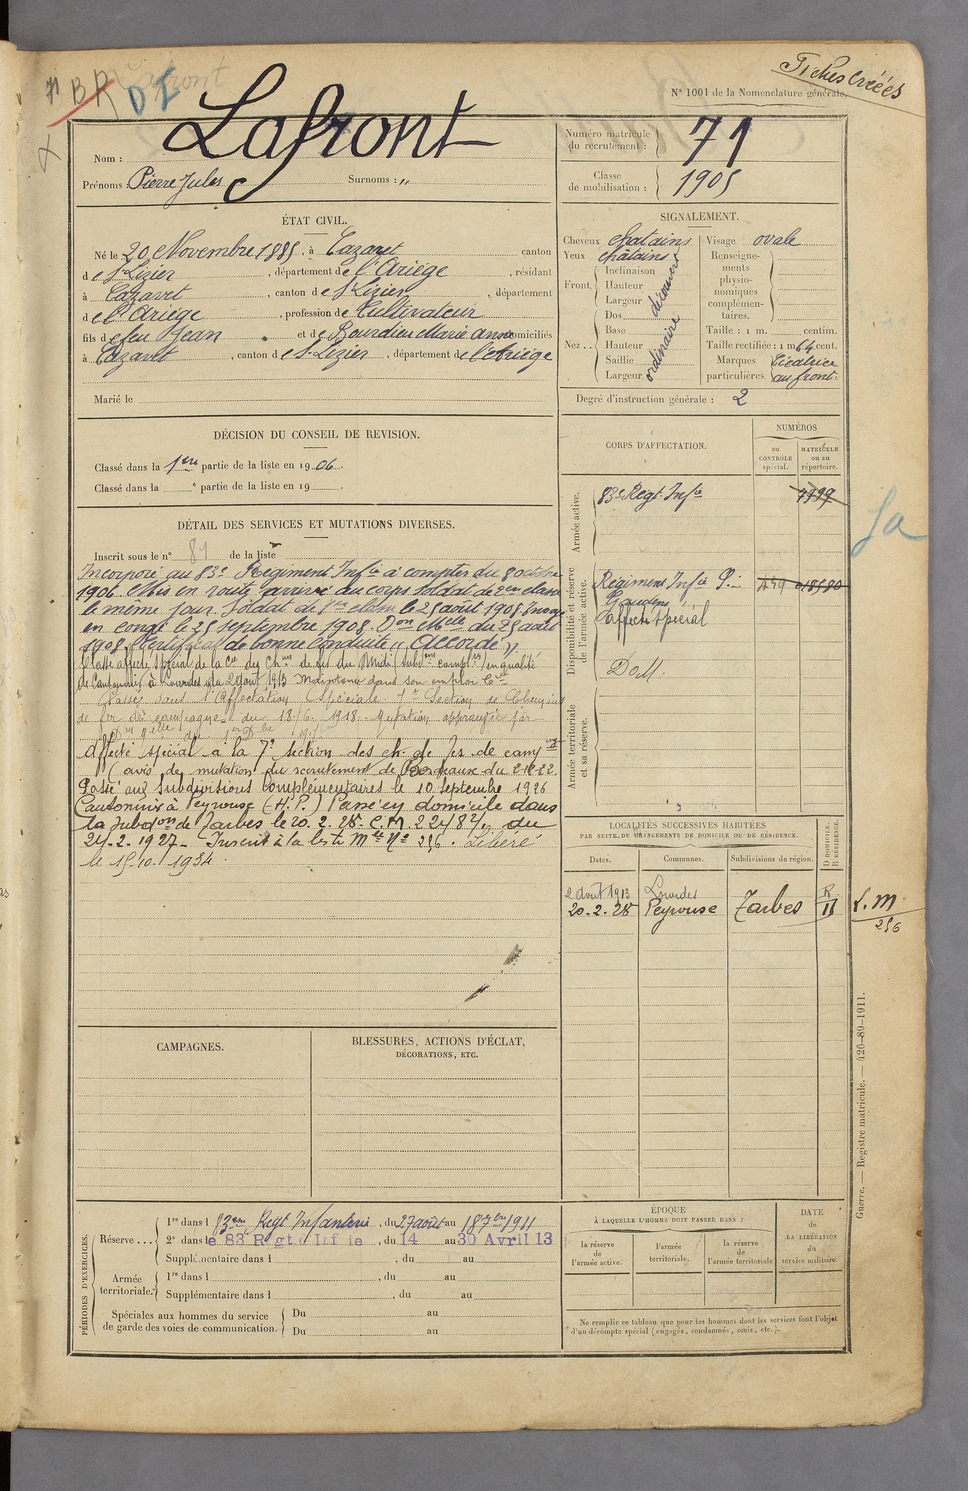 Fiches créées
N° 1001 de la Nomenclature générale.
BR DI
Lafront
Nom : Lafront
Prénoms : Pierre Jules Surnoms : "
Numéro matricule du recrutement : 71
Classe de mobilisation : 1905
ÉTAT CIVIL.
Né le 20 Novembre 1885, à Cazaret canton
de St Lizier, département de l'Ariège, résidant
à Cazaret, canton de St Lizier, département
de l'Ariège, profession de Cultivateur
fils de feu Jean et de Bourdieu Marie Anne domiciliés
à Cazaret, canton de St Lizier, département de l'Ariège
Marié le
SIGNALEMENT.
Cheveux chatains Visage ovale
Yeux chatains
Front. Inclinaison Hauteur Largeur
Nez .. Dos Base Hauteur Saillie Largeur ordinaire
Renseignements physionomiques complémentaires.
Taille : 1 m. centim.
Taille rectifiée : 1 m 64 cent.
Marques particulières. Cicatrice au front.
Degré d'instruction générale : 2
DÉCISION DU CONSEIL DE REVISION.
Classé dans la 1ère partie de la liste en 1906.
Classé dans la ° partie de la liste en 19
CORPS D'AFFECTATION.
NUMÉROS
au CONTRÔLE spécial.
MATRICULE ou au répertoire.
Armée active.
83e Regt Infie 7999
Disponibilité et réserve de l'armée active.
Régiment Infie St Gaudens
affecté spécial
DoM.
Armée territoriale et sa réserve.
DÉTAIL DES SERVICES ET MUTATIONS DIVERSES.
Inscrit sous le n° 81 de la liste
Incorporé au 83e Régiment Infie à compter du 8 octobre
1906. Mis en route, arrivé au corps soldat de 2e classe
le même jour. Soldat de 1re classe le 25 août 1908. Envoyé
en congé le 25 septembre 1908. Don Melle du 25 août
1908. Certificat de bonne conduite "Accordé".
Classé affecté spécial de la Cie des Chins de fer du Midi (Subdons complres) en qualité
de Cantonnier à Lourdes le 2 Août 1913 Maintenu dans son emploi
Passé dans l'Affectation Spéciale 7e Section de Chemins
de fer de campagne du 18/6. 1918. Mutation approuvée par
Affecté spécial à la 7e section des ch. de fer de camp
(avis de mutation du recrutement de Bordeaux du 2-12-22.
Passé aux Subdivisions Complémentaires le 10 septembre 1926
Cantonnier à Peyrouse (H.P.) Passé en domicile dans
la Subdon de Tarbes le 20. 2. 28. C.M.
24. 2. 1927 - Inscrit à la liste Mle No 256. Libéré
le 15.10. 1934.
LOCALITÉS SUCCESSIVES HABITÉES
PAR SUITE DE CHANGEMENTS DE DOMICILE OU DE RÉSIDENCE.
Dates. Communes. Subdivisions de région. D DOMICILE. R RÉSIDENCE.
2 Août 1913 Lourdes R
20. 2. 28 Peyrouse Tarbes D
L.M 256
CAMPAGNES.
BLESSURES, ACTIONS D'ÉCLAT,
DÉCORATIONS, ETC.
PÉRIODES D'EXERCICES.
Réserve ... 1re dans l 83em Regt Infanterie, du 27 août au 18 7bre 1911
2e dans le 83 Regt d Infie, du 14 au 30 Avril 13
Supplémentaire dans l , du au
Armée territoriale. 1re dans l , du au
Supplémentaire dans l , du au
Spéciales aux hommes du service de garde des voies de communication. Du au
Du au
ÉPOQUE
À LAQUELLE L'HOMME DOIT PASSER DANS :
la réserve de l'armée active.
l'armée territoriale.
la réserve de l'armée territoriale
DATE de LA LIBÉRATION du service militaire.
Ne remplir ce tableau que pour les hommes dont les services font l'objet
d'un décompte spécial (engagés, condamnés, omis, etc.).
Guerre. — Registre matricule. — 426-89-1911.